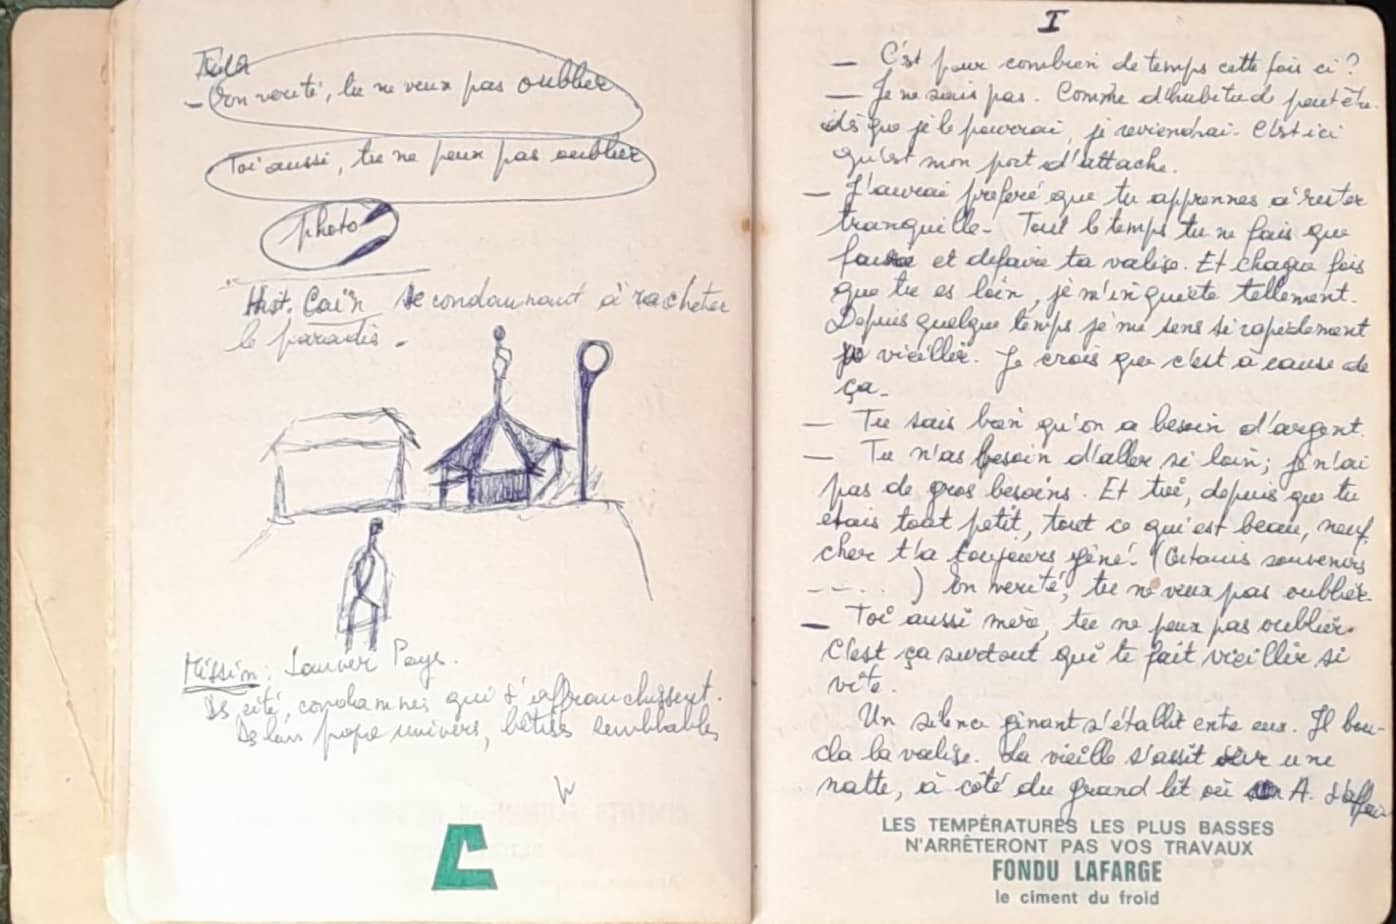 - En verité, tu ne veux pas oublier
Toi aussi, tu ne peux pas oublier
photo
Hist. Caïn se condamnant à racheter
le paradis.
Mission: Sauver Pays.
cité, condamnés qui s'affranchissent.
propre univers, bêtises semblables
I
— C'est pour combien de temps cette fois ci?
— Je ne sais pas. Comme d'habitude peut être.
dès que je le pourrai, je reviendrai. C'est ici
qu'est mon port d'attache.
— J'aurai preferé que tu apprennes à rester
tranquille. Tout le temps tu ne fais que
faire et defaire ta valise. Et chaque fois
que tu es loin, je m'inquiète tellement.
Depuis quelque temps je me sens si rapidement
vieillir. Je crois que c'est à cause de
ça.
— Tu sais bien qu'on a besoin d'argent.
— Tu n'as besoin d'aller si loin; je n'ai
pas de gros besoins. Et toi, depuis que tu
étais tout petit, tout ce qui est beau, neuf,
cher t'a toujours gêné. (Certains souvenirs
- - . . . ) En verité, tu ne veux pas oublier.
— Toi aussi mère, tu ne peux pas oublier.
C'est ça surtout qui te fait vieillir si
vite.
Un silence gênant s'établit entre eux. Il bou-
cla la valise. La vieille s'assit sur une
natte, à côté du grand lit où A.
LES TEMPÉRATURES LES PLUS BASSES
N'ARRÊTERONT PAS VOS TRAVAUX
FONDU LAFARGE
le ciment du froid